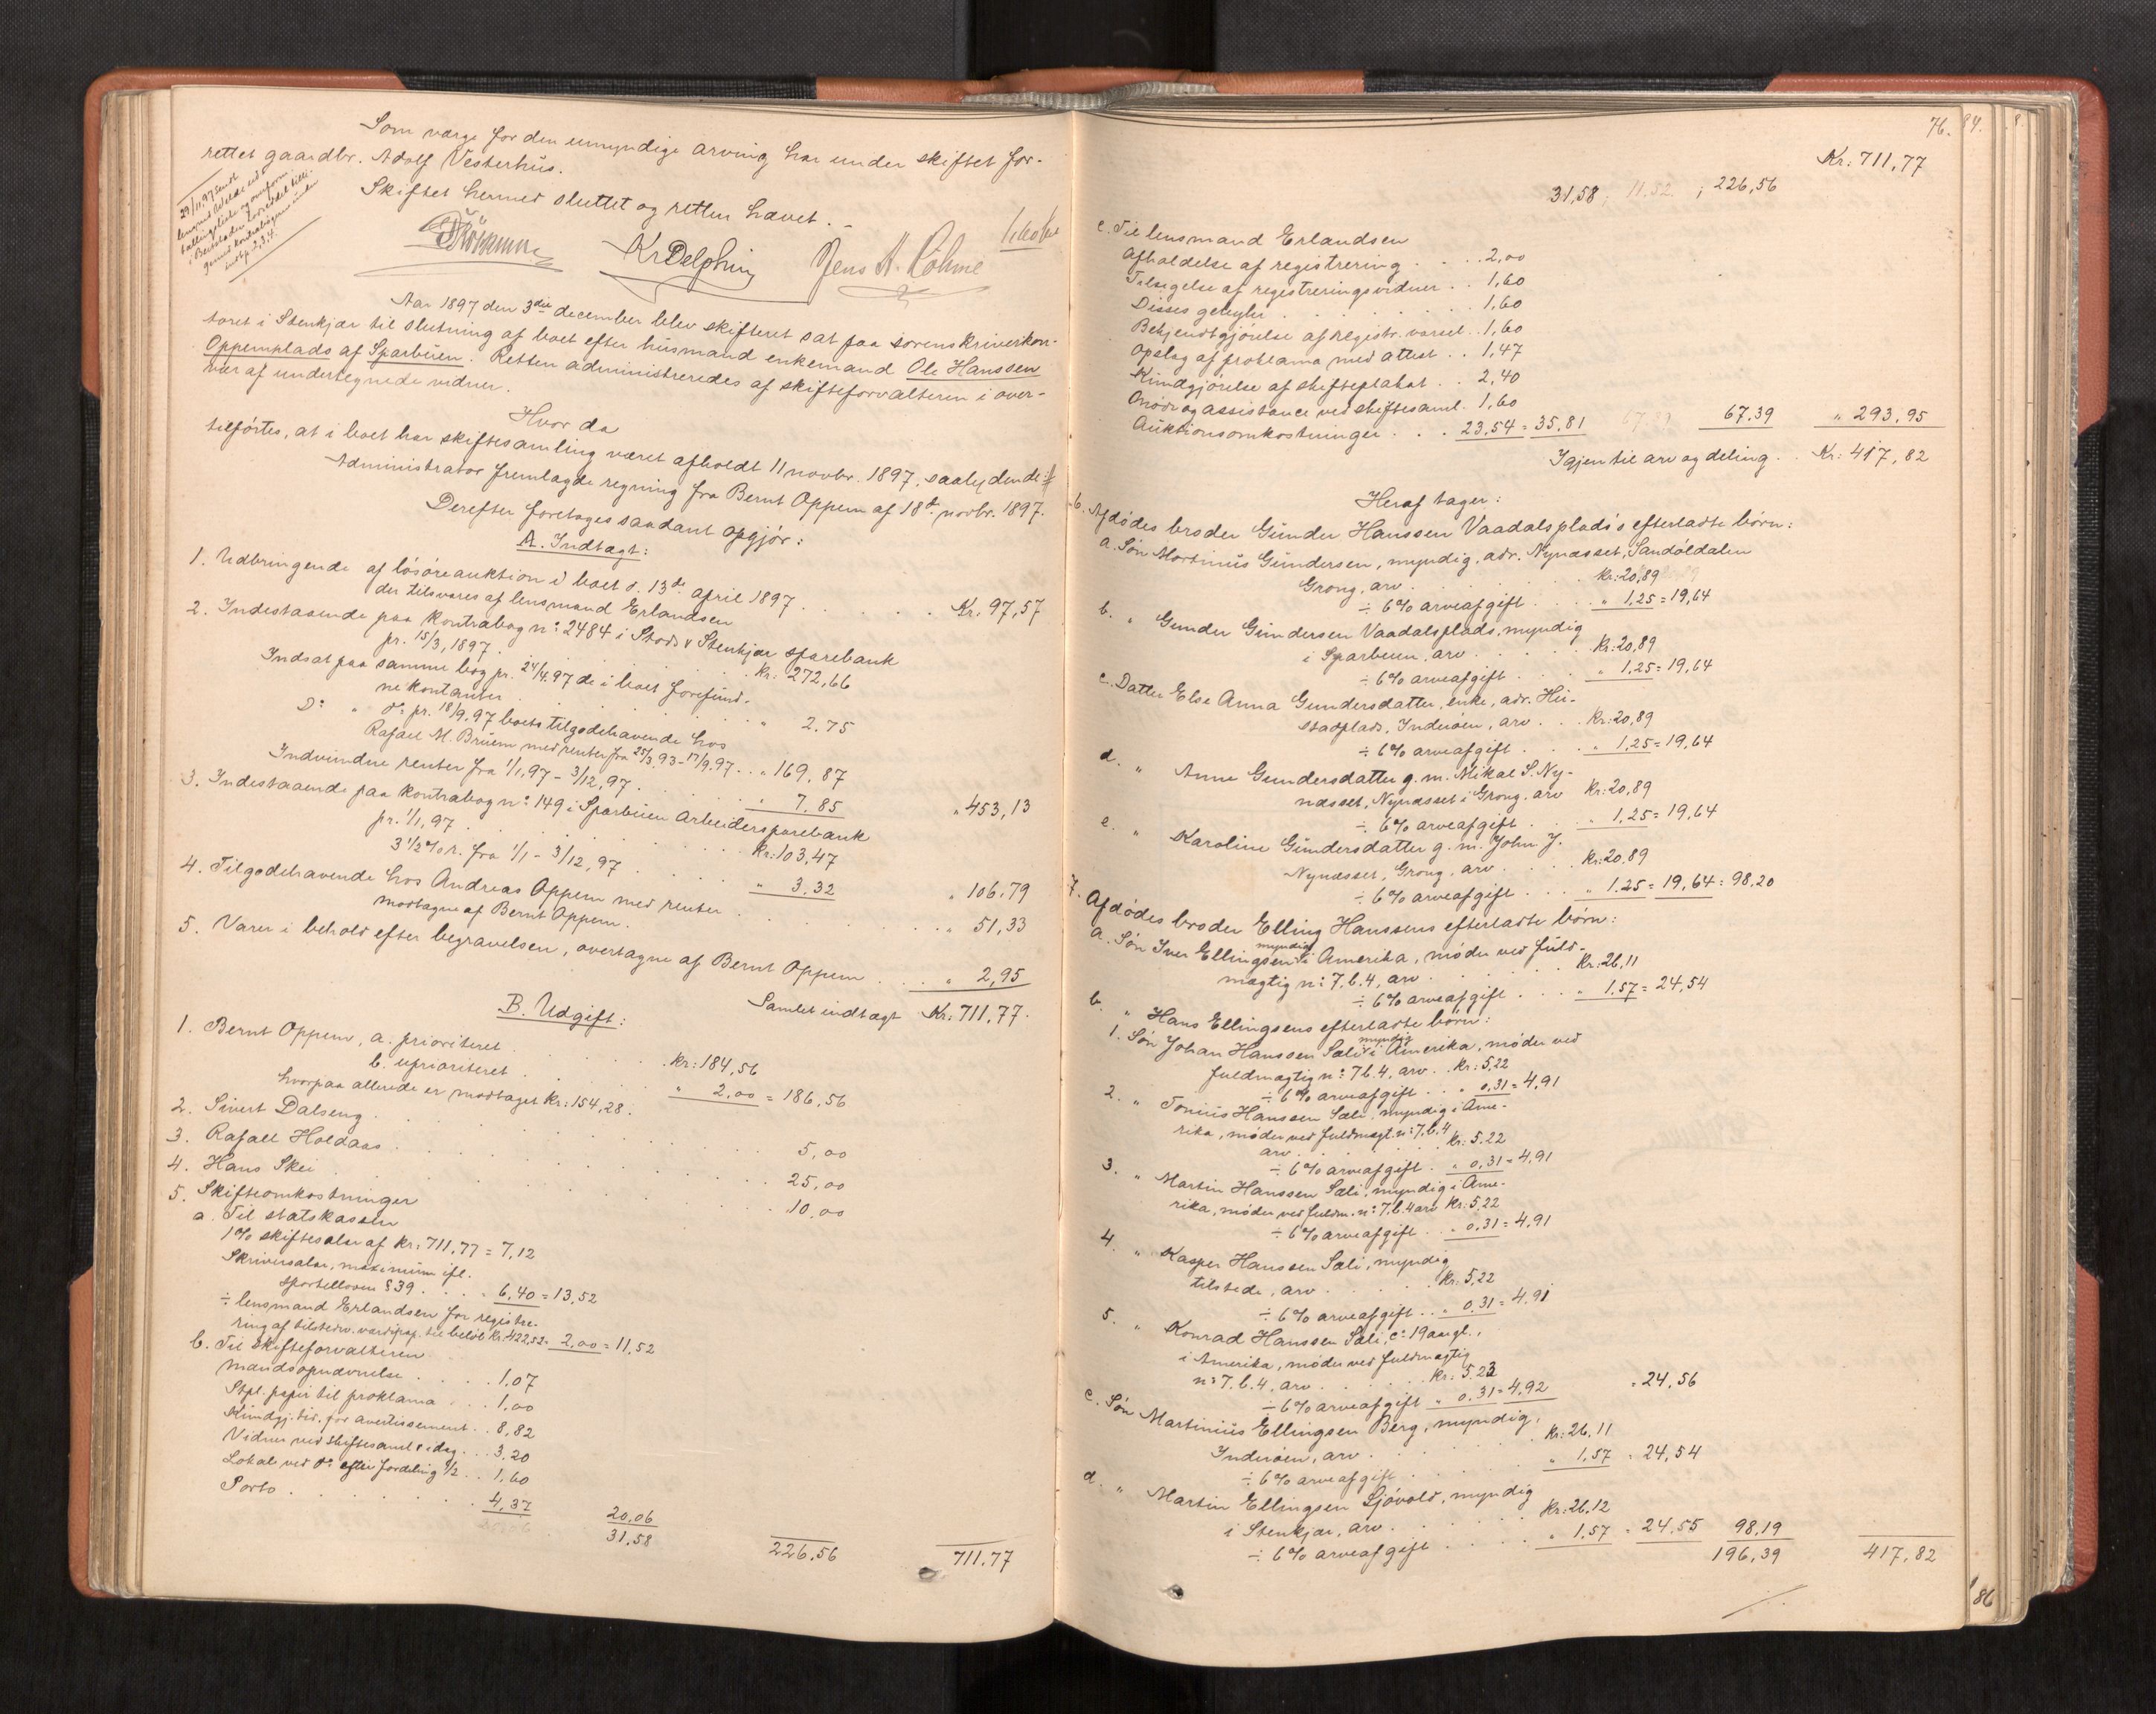 Som værge for den umyndige arving har under skiftet for-
rettet gaardbr. Adolf Vesterhus.
Skiftet hermed sluttet og retten hævet.
29/11 97 sendt
KrDelphin Jens A. Röhme
Aar 1897 den 3die december blev skifteret sat paa sorenskriverkon-
toret i Stenkjær til slutning af boet efter husmand enkemand Ole Hanssen
Oppemplads af Sparbuen. Retten administreredes af skifteforvalteren i over-
vær af undertegnede vidner.
Hvor da
tilførtes, at i boet har skiftesamling været afholdt 11 novbr. 1897, saalydende:
Administrator fremlagde regning fra Bernt Oppem af 18de novbr. 1897.
Derefter foretoges saadant opgjør:
A. Indtægt:
1. Udbringende af løsøreauktion i boet d. 13de april 1897
der tilsvares af lensmand Erlandsen . . . Kr. 97,57
2. Indestaaende paa kontrabog nº 2484 i Stods & Stenkjær sparebank
pr. 15/3, 1897 . . . Kr. 272,66
Indsat paa samme bog pr. 24/4.97 de i boet forefund-
ne kontanter . . . " 2.75
Dº " dº pr. 18/9.97 boets tilgodehavende hos
Rafael M. Bruem med renter fra 25/3.93 - 17/9.97 . . " 169,87
Indvundne renter fra 1/1,97 - 3/12,97 . . . " 7.85 " 453,13
3. Indestaaende paa kontrabog nº 149 i Sparbuen Arbeidersparebank
pr. 1/1,97 . . . Kr: 103,47
3 1/2 % r. fra 1/1 - 3/12,97 . . . " 3.32 " 106.79
4. Tilgodehavende hos Andreas Oppem med renter
modtagne af Bernt Oppem . . . " 51,33
5. Varer i behold efter begravelsen, overtagne af Bernt Oppem . . . " 2,95
Samlet indtægt Kr: 711,77.
B. Udgift:
1. Bernt Oppem, a. prioriteret . . . Kr: 184,56
b. uprioriteret . . . " 2,00 = 186,56
hvorpaa allerede er modtaget Kr: 154,28.
2. Sivert Dalseng . . . 5,00
3. Rafael Holdaas . . . 25,00
4. Hans Skei . . . 10,00
5. Skifteomkostninger
a. Til statskassen
1% skiftesalær af Kr: 711,77 = 7,12
Skriversalær, maximum ifl.
sportelloven § 39 . . . 6,40 = 13,52
÷ lensmand Erlandsen for registre-
ring af tilstedev. værdipap. til beløb Kr: 422,52 - 2,00 = 11,52
b. Til skifteforvalteren
mandsopnævnelse . . . 1,07
Stpl. papir til proklama . . . 1,00
Kundgj. tid. for avertissement . . 8,82
Vidner ved skiftesaml & idag . . . 3,20
Lokale ved dº efter fordeling 1/2 . . 1,60
Porto . . . 4,37 20,06
31,58 226,56 711,77
76. 84.
Kr: 711,77
31,58 11,52 ; 226,56
c. Til lensmand Erlandsen
Afholdelse af registrering . . . 2,00
Tilsigelse af registreringsvidner . . 1,60
Disses gebyhr . . . 1,60
Bekjendtgjørelse af registr. varsel . . 1,60
Opslag af proklama med attest . . 1,47
Kundgjørelse af skifteplakat . . 2,40
Møde og assistance ved skiftesaml. 1,60
Auktionsomkostninger . . . 23,54 = 35,81 67,39 67.39 " 293,95
Igjen til arv og deling . . Kr: 417,82
Heraf tager:
6. Afdødes broder Gunder Hanssen Vaadalsplads's efterladte børn:
a. Søn Martinus Gundersen, myndig, adr. Nynæsset, Sandöldalen
Grong, arv . . . Kr: 20,89
÷ 6% arveafgift . . . " 1,25 = 19,64
b. " Gunder Gundersen Vaadalsplads, myndig
i Sparbuen, arv . . . Kr: 20,89
÷ 6% arveafgift . . . " 1,25 = 19,64
c. Datter Else Anna Gundersdatter, enke, adr. Hu-
stadplads, Inderøen, arv . . . Kr: 20,89
÷ 6% arveafgift . . . " 1,25 = 19,64
d. " Anne Gundersdatter g. m. Mikal S. Ny-
næsset, Nynæsset i Grong, arv Kr: 20,89
÷ 6% arveafgift . . . " 1,25 = 19,64
e. " Karoline Gundersdatter g. m. John J.
Nynæsset, Grong, arv . . . Kr: 20,89
÷ 6% arveafgift . . . " 1.25 = 19,64 = 98,20
7. Afdødes broder Elling Hanssens efterladte børn:
a. Søn Iver Ellingsen myndig i Amerika, møder ved fuld-
mægtig nº 7.b.4, arv . . . Kr: 26,11
÷ 6% arveafgift . . . " 1.57 = 24,54
b. " Hans Ellingsens efterladte børn:
1. Søn Johan Hanssen Sæli myndig i Amerika, møder ved
fuldmægtig nº 7b.4, arv . . Kr: 5,22
÷ 6% arveafgift . . " 0,31 = 4,91
2. " Tonius Hanssen Sæli, myndig i Ame-
rika, møder ved fuldmægt. nº 7.b.4
arv . . . Kr: 5.22
÷ 6% arveafgift . " 0,31 = 4,91
3. " Martin Hanssen Sæli, myndig i Ame-
rika, møder ved fuldm. nº 7.b.4 arv Kr: 5,22
÷ 6% arveafgift . . " 0.31 = 4,91
4. " Kasper Hanssen Sæli, myndig
tilstede, arv . . . Kr: 5,22
÷ 6% arveafgift . . " 0.31 = 4.91
5. " Konrad Hanssen Sæli, cº 19 aar gl.,
i Amerika, møder ved fuldmægtig
nº 7.b.4, arv . . . Kr: 5.23
÷ 6% arveafgift " 0.31 = 4,92 = 24,56
c. Søn Martinius Ellingsen Berg, myndig,
Inderøen, arv . . . Kr: 26,11
÷ 6% arveafgift . . . " 1,57 = 24,54
d. " Martin Ellingsen Sjøvold, myndig
i Stenkjær, arv . . . Kr: 26,12
÷ 6% arveafgift . . . " 1,57 = 24,55 98,19
196,39 417,82
86